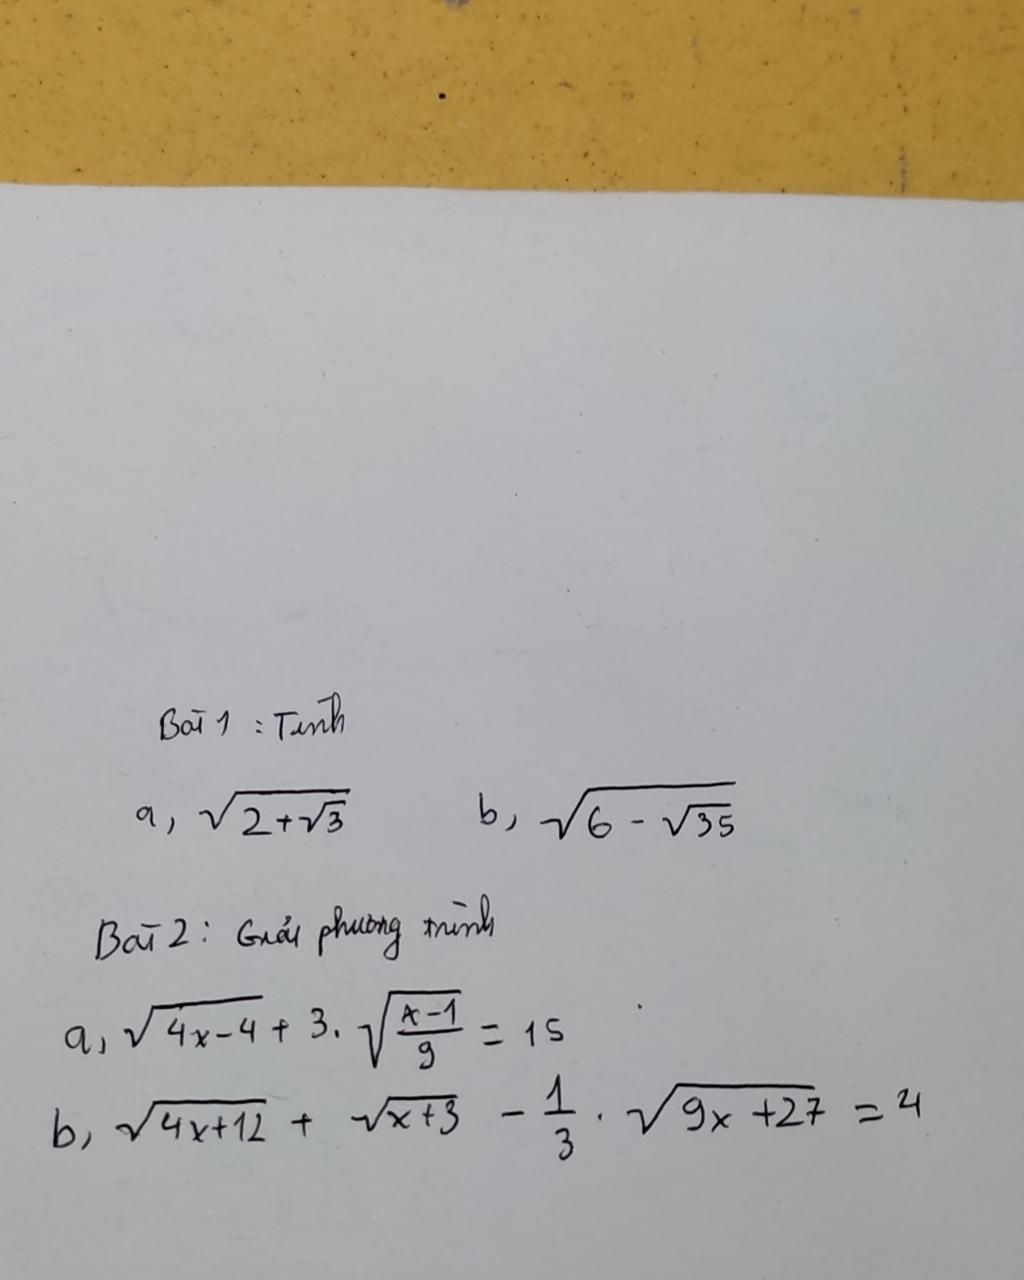 Bài 1 : Tính
a, √(2+√3) b, √(6 - √35)
Bài 2 : Giải phương trình
a, √(4x-4) + 3. √((x-1)/9) = 15
b, √(4x+12) + √(x+3) - 1/3 . √(9x+27) = 4